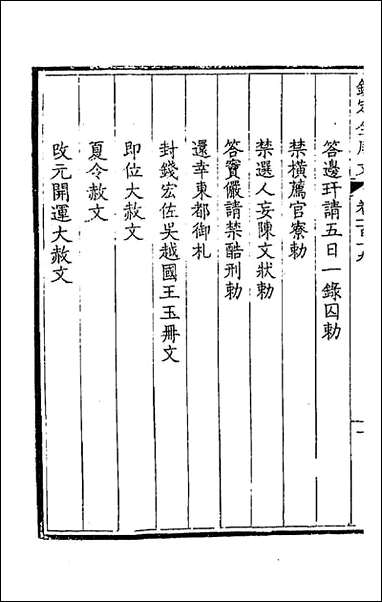 答邊玕請五日一錄囚勅
禁橫薦官寮勅
禁選人妄陳文狀勅
答竇儼請禁酷刑勅
還幸東都御札
封錢宏佐吳越國王玉冊文
即位大赦文
夏令赦文
改元開運大赦文